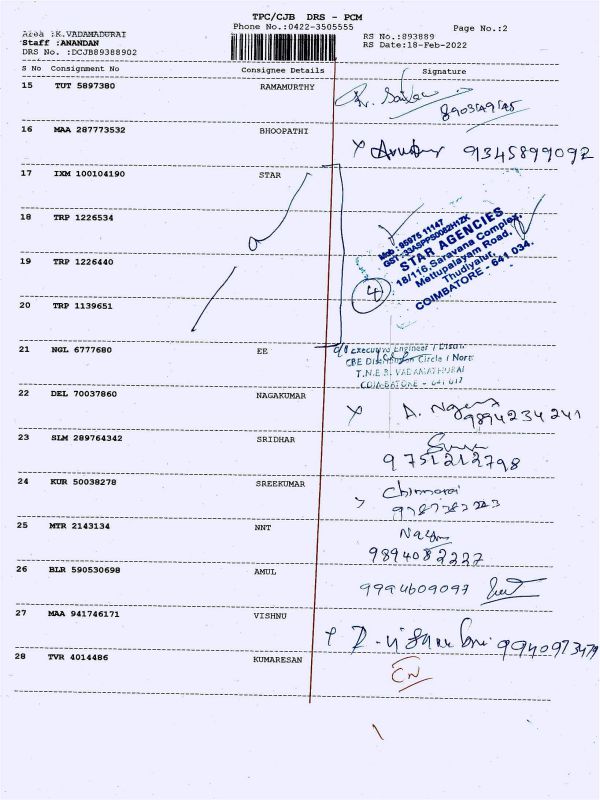 TPC/CJB DRS - PCM
Phone No.:0422-3505555
Page No.:2
Area :K.VADAMADURAI
Staff :ANANDAN
DRS No. :DCJB89388902
RS No.:893889
RS Date:18-Feb-2022
S No Consignment No Consignee Details Signature
15 TUT 5897380 RAMAMURTHY
16 MAA 287773532 BHOOPATHI 9345899092
17 IXM 100104190 STAR
18 TRP 1226534
19 TRP 1226440
20 TRP 1139651
4
Mob : 95975 11147
STAR AGENCIES
18/116, Saravana Complex,
Mettupalayam Road,
Thudiyalur,
COIMBATORE - 641 034.
21 NGL 6777680 EE
Executive Engineer / Distn.
CBE Distribution Circle / North
T.N.E.B. VADAMATHURAI
COIMBATORE - 641 017
22 DEL 70037860 NAGAKUMAR
9894234241
23 SLM 289764342 SRIDHAR
9751212798
24 KUR 50038278 SREEKUMAR
25 MTR 2143134 NNT
9894082227
26 BLR 590530698 AMUL 9994609097
27 MAA 941746171 VISHNU
9940973479
28 TVR 4014486 KUMARESAN
CN